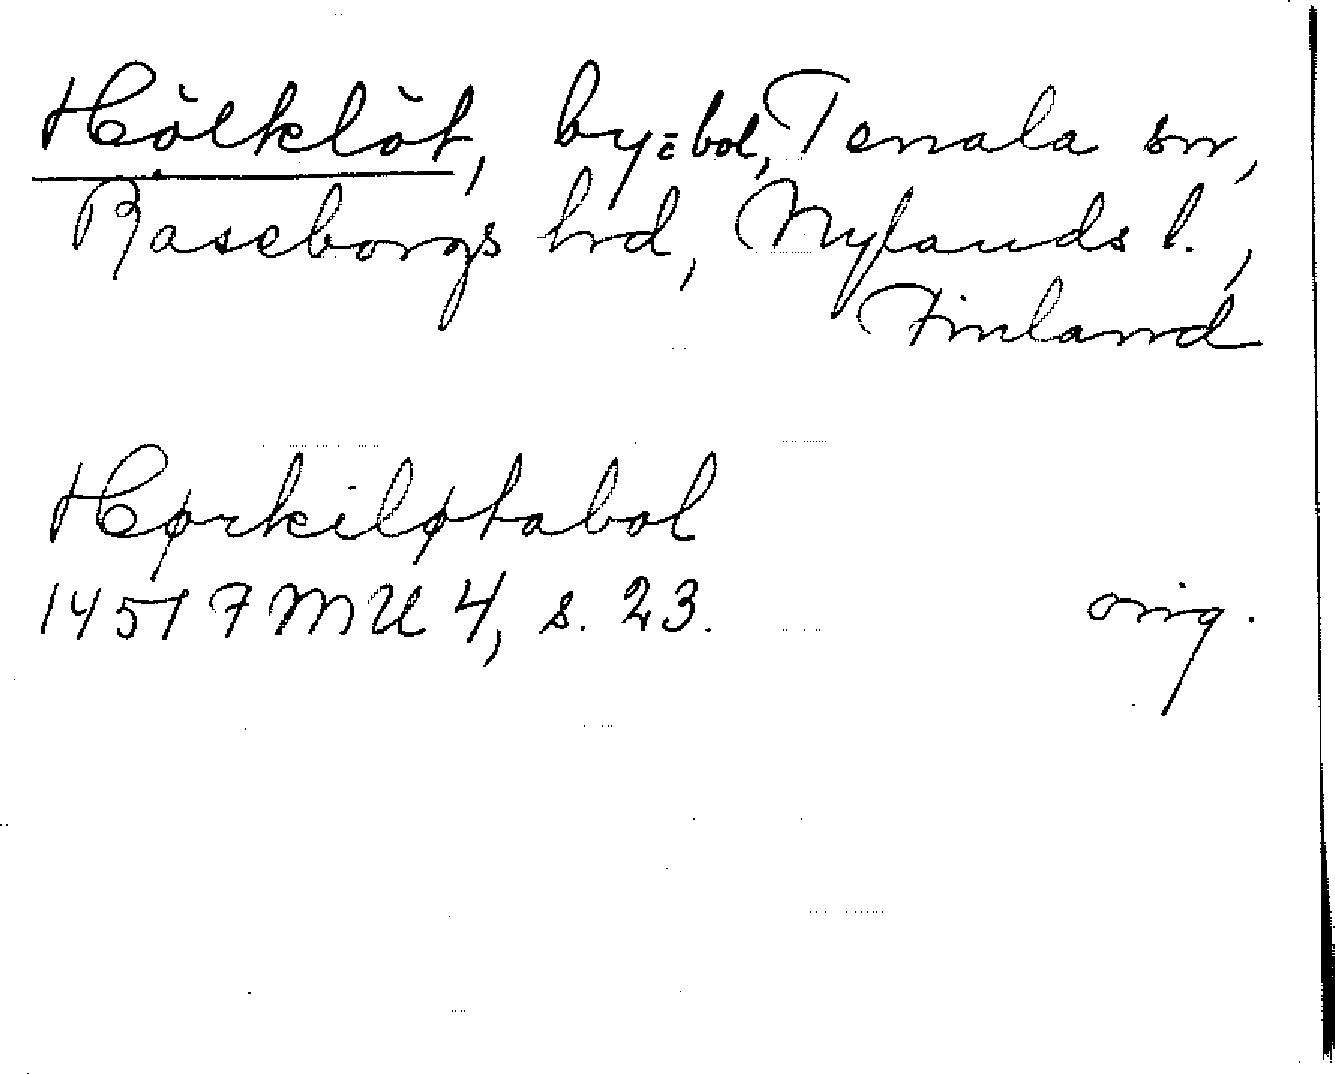 Hölklöt, by=bol, Tenala sn,
Raseborgs hrd, Nylands l.,
Finland
Hørkiløtabol
1451 FMU 4, s. 23. orig.